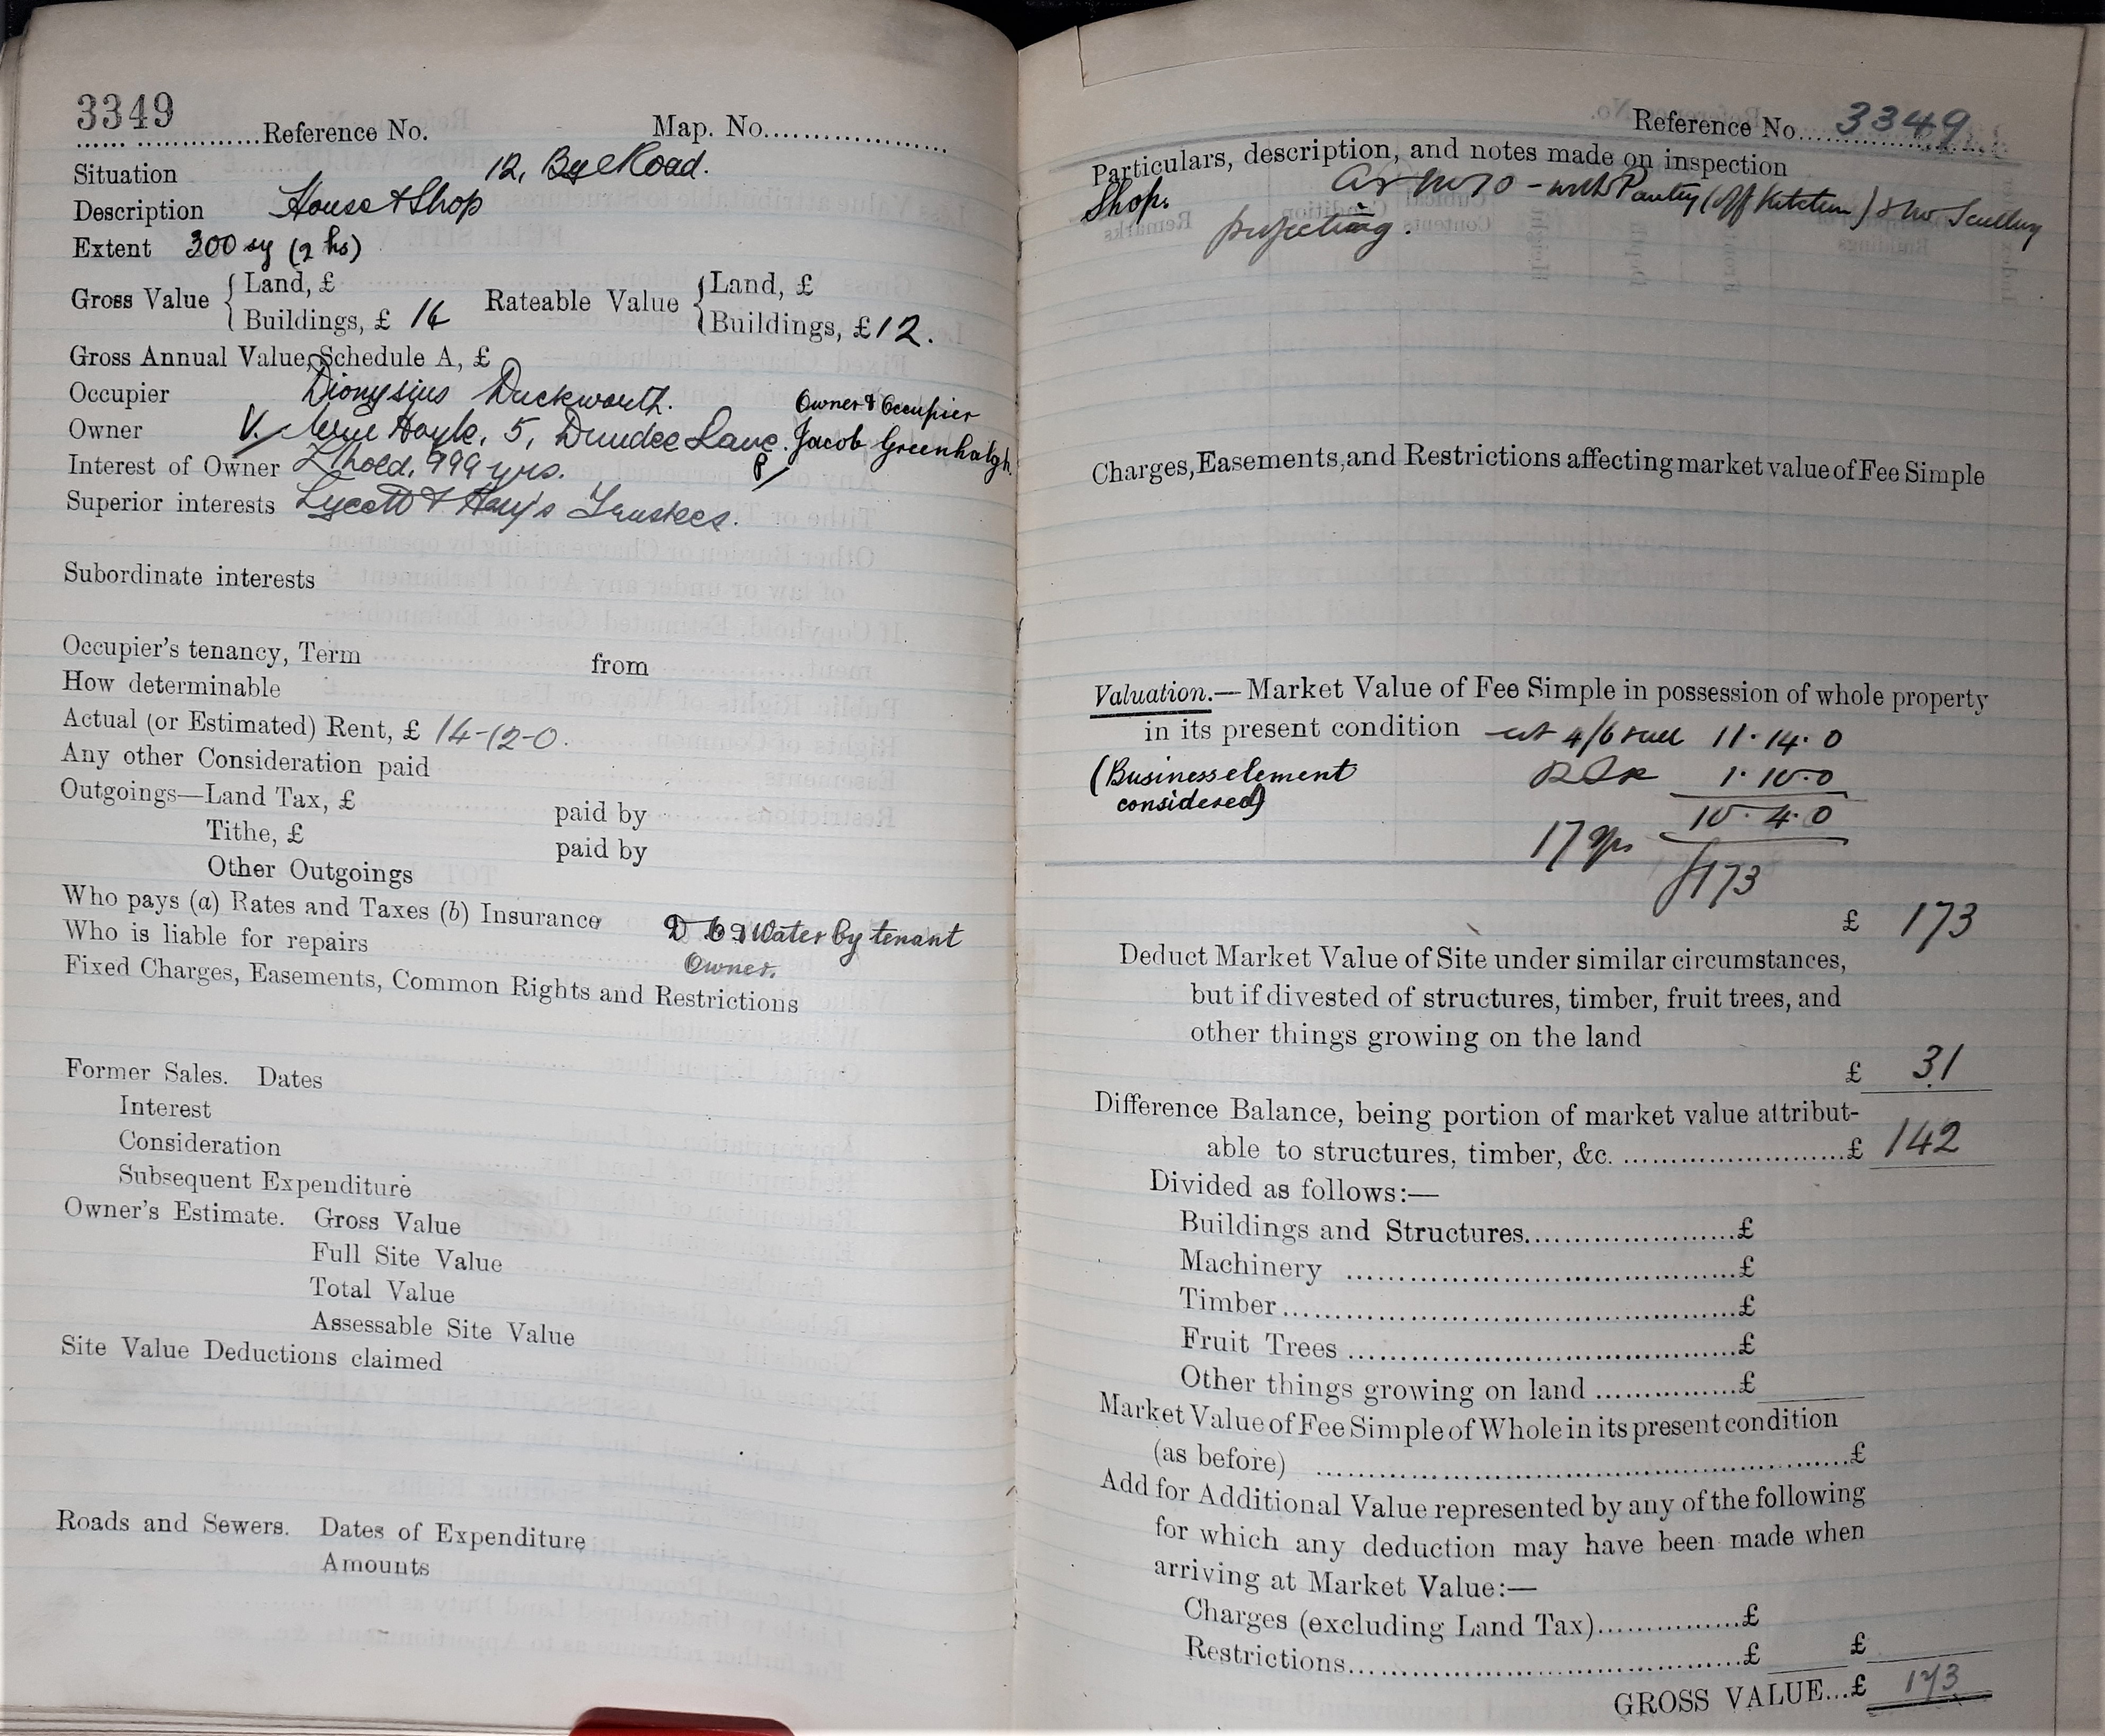 3349
Reference No. Map. No.
Situation 12, Bye Road.
Description House & Shop
Extent 300 sy (2 hs)
Gross Value { Land, £ Rateable Value { Land, £
Buildings, £ 16 Buildings, £ 12.
Gross Annual Value, Schedule A, £
Occupier Dionysius Duckworth. Owner & Occupier
Owner V. Hoyle, 5, Dundee Lane. Jacob Greenhalgh.
Interest of Owner L'hold, 999 yrs.
Superior interests Lycett & Hay's Trustees.
Subordinate interests
Occupier's tenancy, Term from
How determinable
Actual (or Estimated) Rent, £ 14-12-0.
Any other Consideration paid
Outgoings—Land Tax, £ paid by
Tithe, £ paid by
Other Outgoings
Who pays (a) Rates and Taxes (b) Insurance Water by tenant
Who is liable for repairs Owner.
Fixed Charges, Easements, Common Rights and Restrictions
Former Sales. Dates
Interest
Consideration
Subsequent Expenditure
Owner's Estimate. Gross Value
Full Site Value
Total Value
Assessable Site Value
Site Value Deductions claimed
Roads and Sewers. Dates of Expenditure
Amounts
Reference No. 3349
Particulars, description, and notes made on inspection
Shop. as no 10 - with Pantry (off Kitchen) & no Scullery
projecting.
Charges, Easements, and Restrictions affecting market value of Fee Simple
Valuation.—Market Value of Fee Simple in possession of whole property
in its present condition at 4/6 11. 14. 0
(Business element 1. 10. 0
considered) 10. 4. 0
17 yrs £173
£ 173
Deduct Market Value of Site under similar circumstances,
but if divested of structures, timber, fruit trees, and
other things growing on the land
£ 31
Difference Balance, being portion of market value attribut-
able to structures, timber, &c. £ 142
Divided as follows:—
Buildings and Structures £
Machinery £
Timber £
Fruit Trees £
Other things growing on land £
Market Value of Fee Simple of Whole in its present condition
(as before) £
Add for Additional Value represented by any of the following
for which any deduction may have been made when
arriving at Market Value:—
Charges (excluding Land Tax) £
Restrictions £ £
GROSS VALUE...£ 173